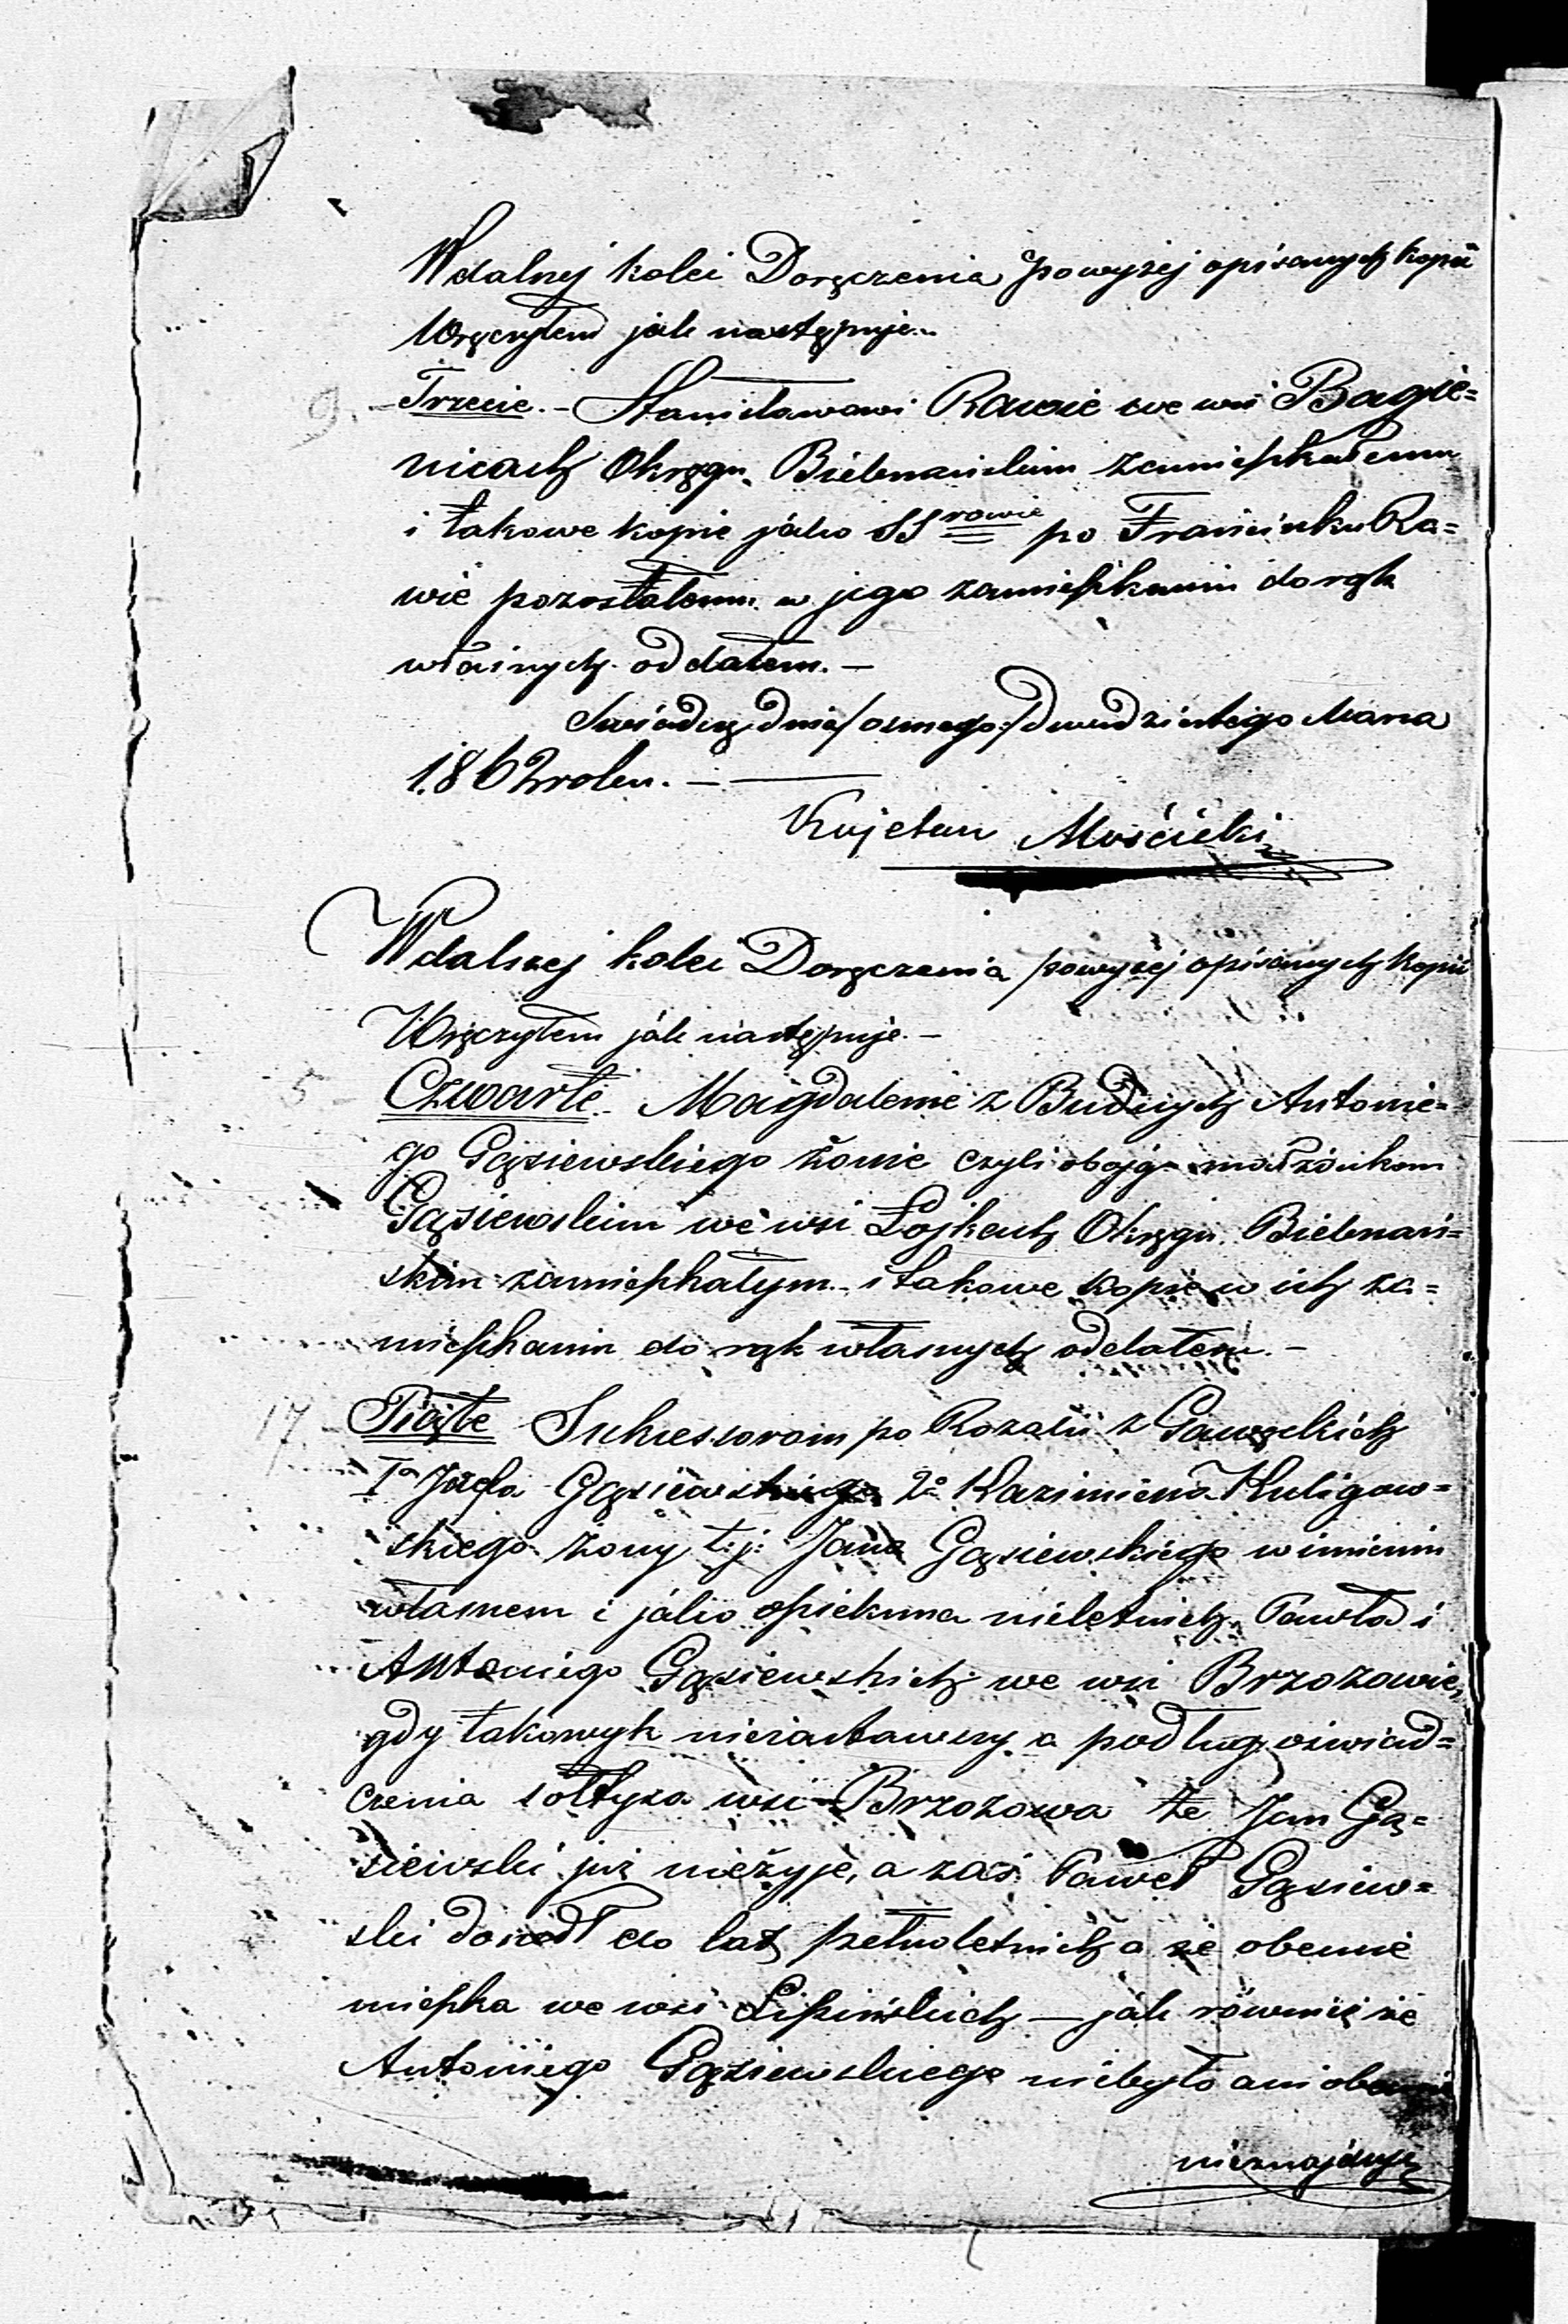 W dalszej kolei Doręczenia powyżej opisanych kopii
Wręczyłem jak następuje.
9. Trzecie. - Stanisławowi Rawie we wsi Bagie=
nicach Okręgu Biebrzańskim zamieszkałemu
i takowe kopie jako SSrowie po Franciszku Ra=
wie pozostałemu w jego zamieszkaniu do rąk
własnych oddałem. -
Świadczę dnia /osmego/ dwudziestego Marca
1862 roku. -
Kajetan Mościcki
W dalszej kolei Doręczenia powyżej opisanych kopii
Wręczyłem jak następuje. -
5 Czwarte. Magdalenie z Budnych Antonie=
go Gąsiewskiego żonie czyli obojga małżonkom
Gąsiewskim we wsi Łojkach Okręgu Biebrzań=
skim zamieszkałym i takowe kopie w ich za=
mieszkaniu do rąk własnych oddałem. -
17. Piąte Sukcessorom po Rozalii z Gawęckich
1o Józefa Gąsiewskiego 2o Kazimierza Kuligow=
skiego żony t:j: Jana Gąsiewskiego w imieniu
własnem i jako opiekuna nieletnich Pawła i
Antoniego Gąsiewskich we wsi Brzozowie,
gdy takowych niezastawszy a podług oświad=
czenia sołtysa wsi Brzozowa że Jan Gą=
siewski już nieżyje, a zaś Paweł Gąsiew=
ski doszedł do lat pełnoletnich a że obecnie
mieszka we wsi Lipińskich — jak również że
Antoniego Gąsiewskiego niebyło ani obecnie
nieznajduje